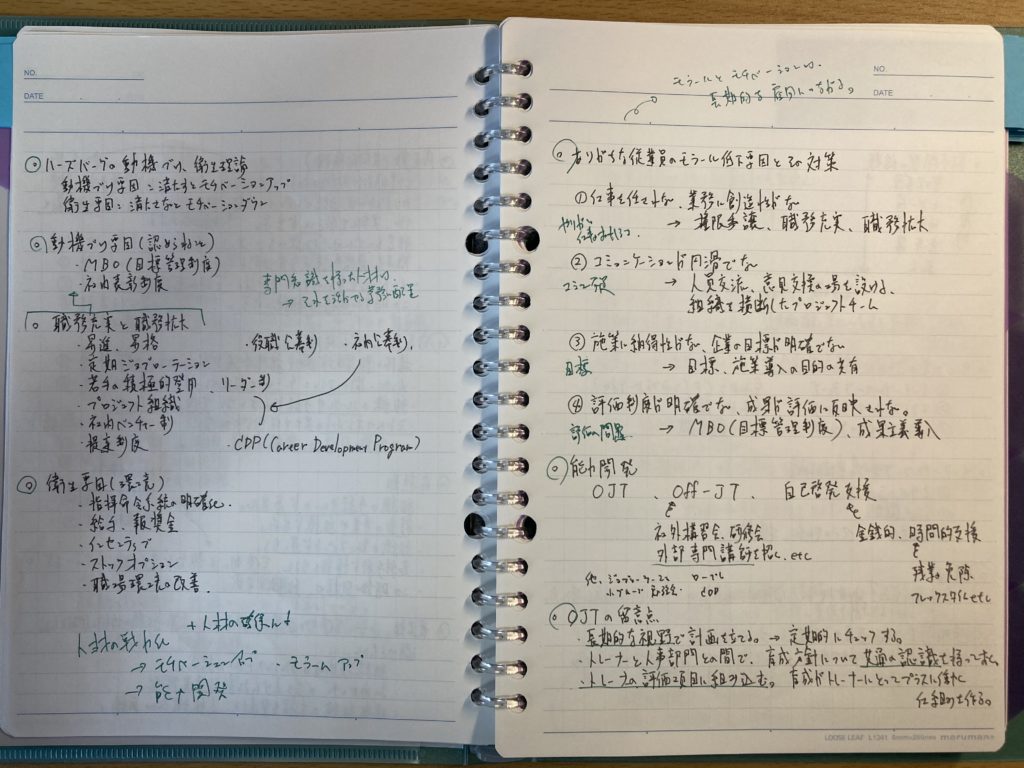 NO.
DATE
◎ハーズバーグの動機づけ、衛生理論
動機づけ要因:満たすとモチベーションアップ
衛生要因:満たさないとモチベーションダウン
◎動機づけ要因(認められること)
・MBO(目標管理制度)
・社内表彰制度
専門知識を持った人材は、
→それを活かせる業務に配置
○職務充実と職務拡大
・昇進、昇格
・役職公募制
・社内公募制、
・定期ジョブローテーション
・若手の積極的登用、リーダー制
・プロジェクト組織
・社内ベンチャー制
・提案制度
・CDP(Career Development Program)
◎衛生要因(環境)
・指揮命令系統の明確化
・給与、報奨金
・インセンティブ
・ストックオプション
・職場環境の改善
+人材の確保
人材の戦力化
→モチベーションアップ・モラールアップ
→能力開発
モラールとモチベーションは、
長期的な
NO.
DATE
◎ありがちな従業員のモラール低下要因とその対策
①仕事を任せれない、業務に創造性がない
→権限委譲、職務充実、職務拡大
②コミュニケーションが円滑でない
→人員交流、意見交換の場を設ける、
組織を横断したプロジェクトチーム
③施策に納得性がない、企業の目標が明確でない
目標
→目標、施策導入の目的の共有
④評価制度が明確でない、成果が評価に反映されない。
評価の問題
→MBO(目標管理制度)、成果主義導入
◎能力開発
OJT、Off-JT、自己啓発支援
社外講習会、研修会
金銭的、時間的支援
外部専門講師を招く、etc
残業の免除
フレックスタイムetc
他、ジョブローテーション
CDP
◎OJTの留意点
・長期的な視野で計画を立てる。→定期的にチェックする。
・トレーナーと人事部門との間で、育成方針について共通の認識を持っておく
・トレーナーの評価項目に組み込む。育成がトレーナーにとってプラスに働く
仕組みを作る。
LOOSE LEAF L1241 6mm×29lines maruman